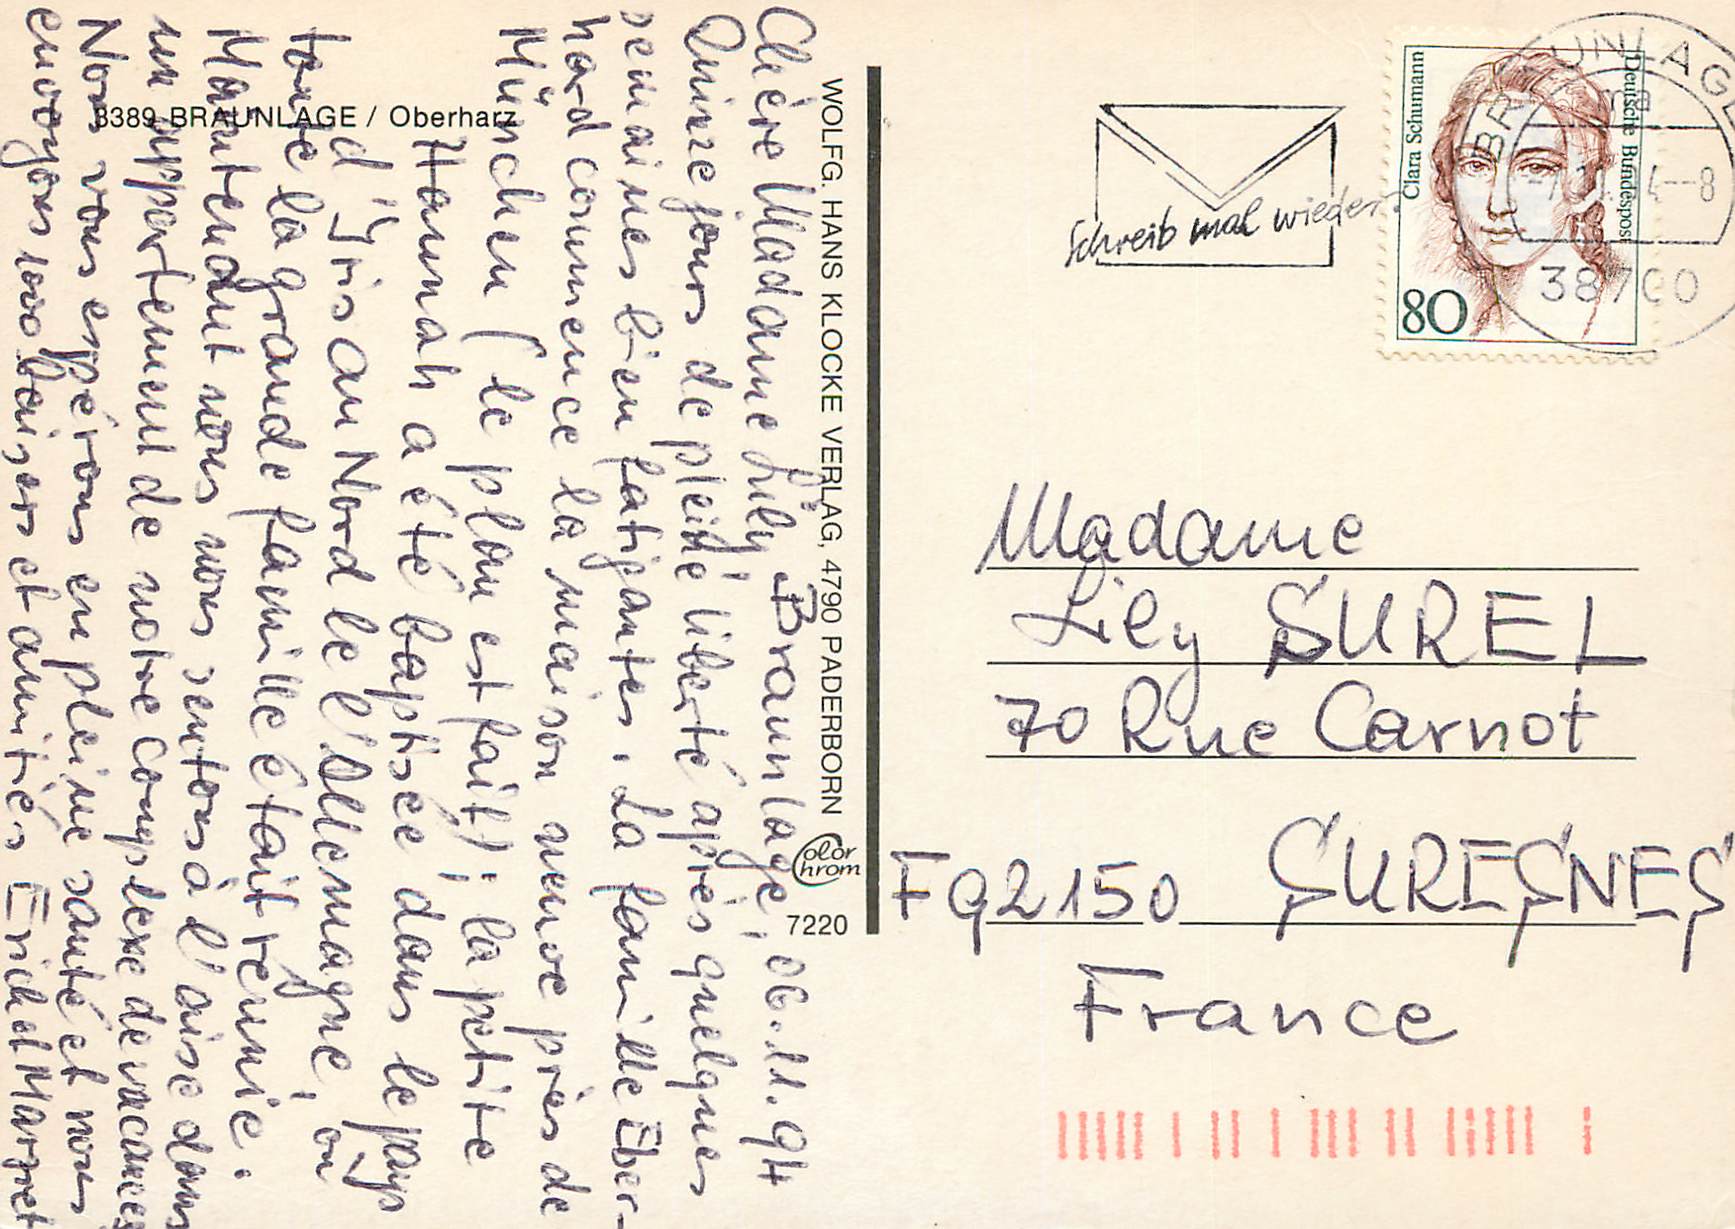 Chère Madame Lily Braunlage, 06.11.94
Quinze jours de pleine liberté après quelques
semaines bien fatigantes. La famille Eber-
hard commence la maison neuve près de
München (le plan est fait); la petite
Hannah a été baptisée dans le pays
d'Iris au Nord de l'Allemagne, où
toute la grande famille était réunie.
Maintenant nous nous sentons à l'aise dans
un appartement de notre complexe de vacances
Nous vous espérons en pleine santé et nous
envoyons 1000 baisers et amitiés Erich et Marret
3389 BRAUNLAGE / Oberharz
WOLFG. HANS KLOCKE VERLAG, 4790 PADERBORN
Color
Chrom
7220
Schreib mal wieder.
Clara Schumann
Deutsche Bundespost
80
BRAUNLAGE
38700
Madame
Lily SUREL
70 Rue Carnot
F92150 SURESNES
France